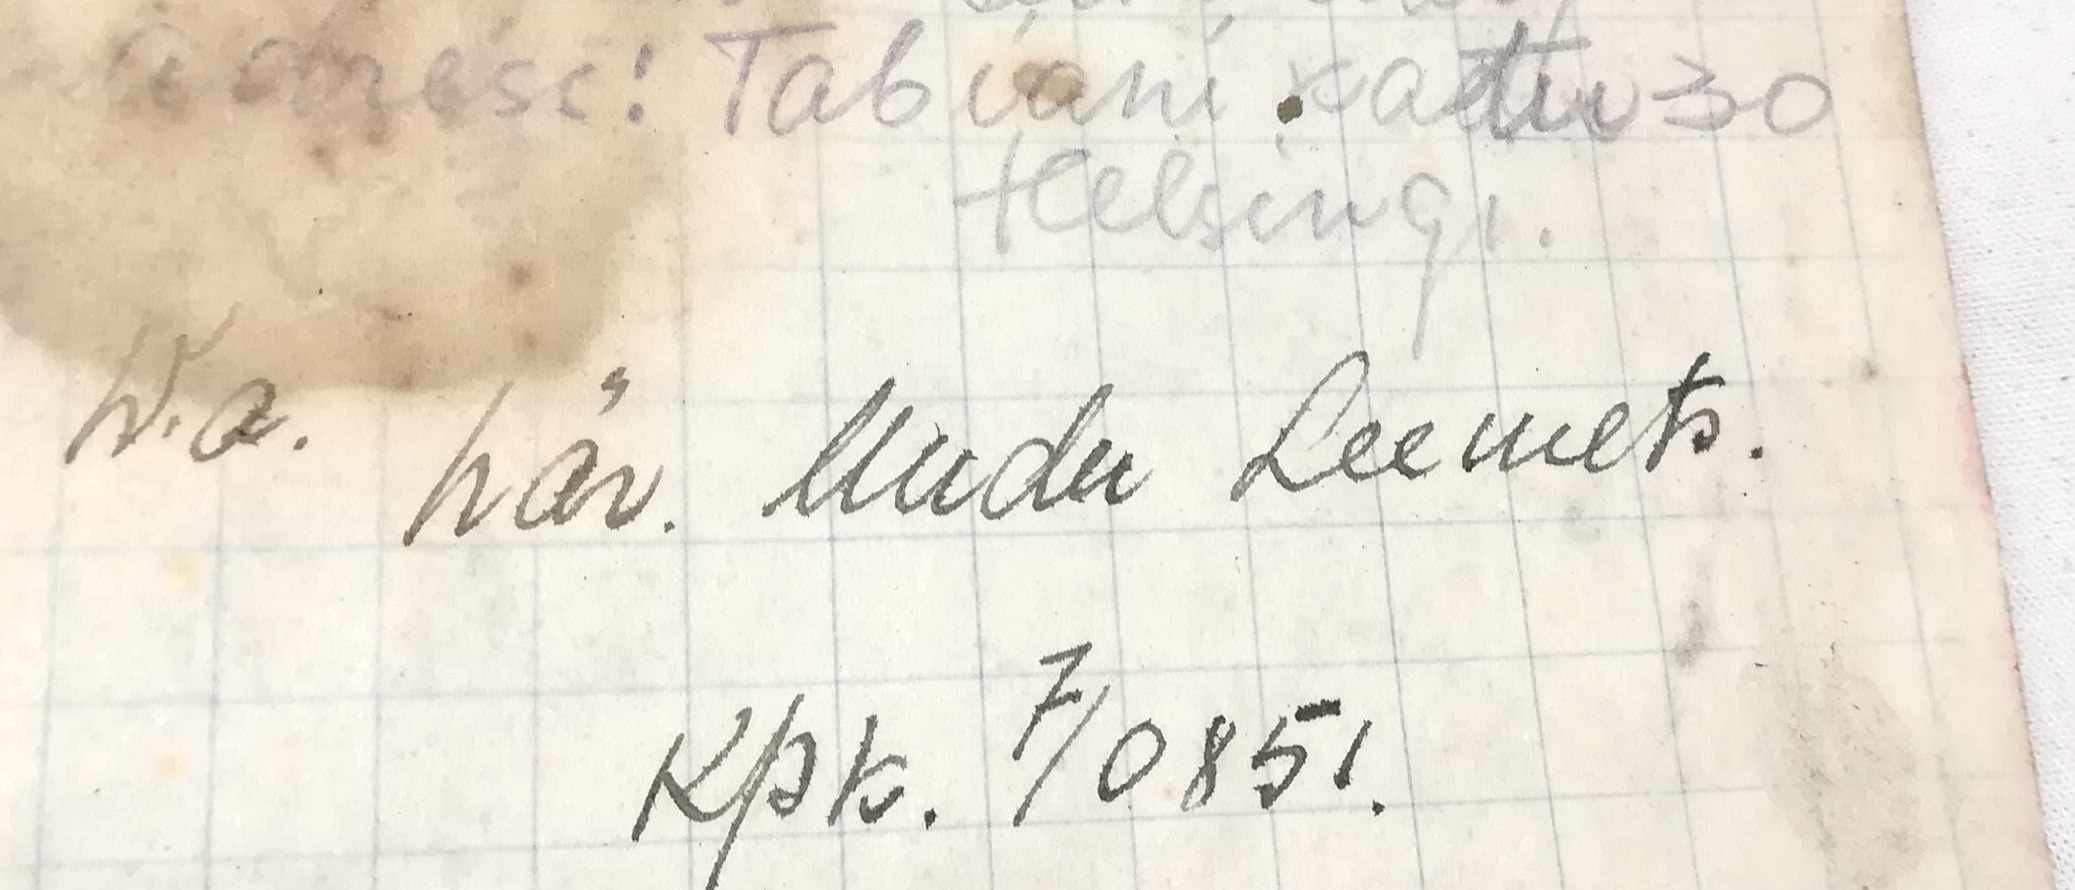 adress: Tabiani katu 30
Helsingi.
V.a. här. Uudu Leemets.
Kpk. 7/0851.